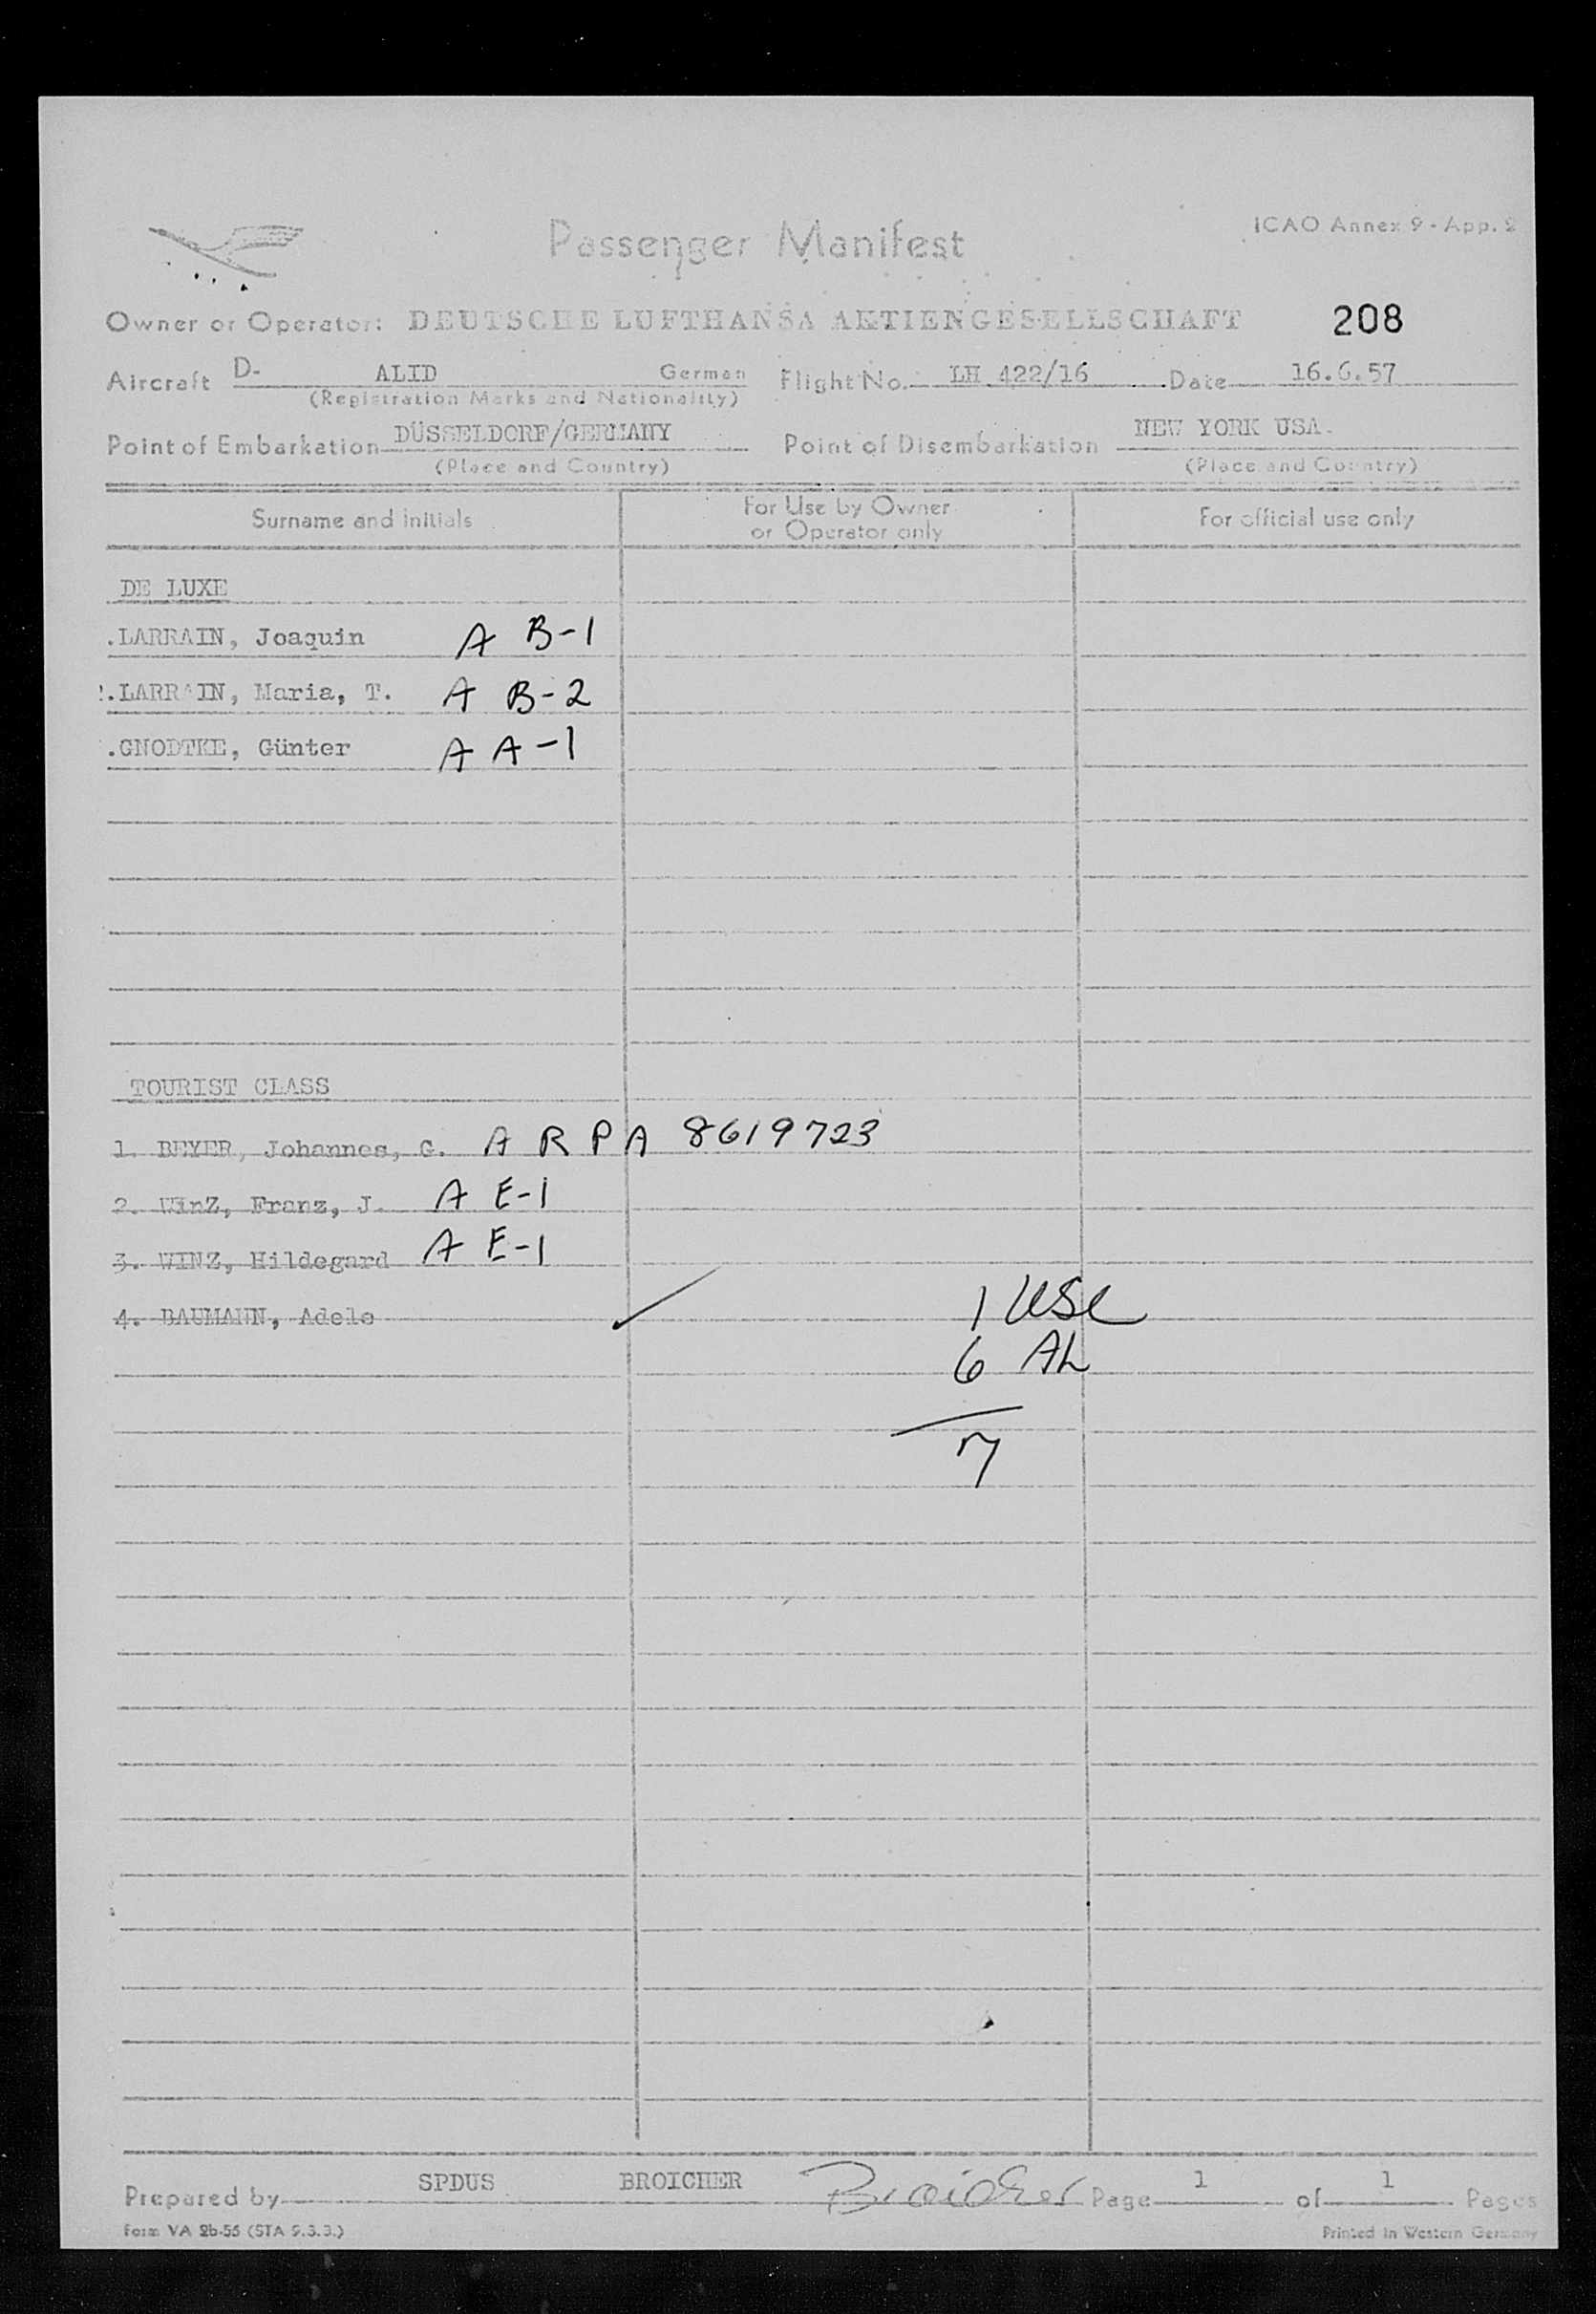 Passenger Manifest
ICAO Annex 9 - App. 2
Owner or Operator: DEUTSCHE LUFTHANSA AKTIENGESELLSCHAFT 208
Aircraft D- ALID German Flight No. LH 422/16 Date 16.6.57
(Registration Marks and Nationality)
Point of Embarkation DÜSSELDORF/GERMANY Point of Disembarkation NEW YORK USA.
(Place and Country) (Place and Country)
Surname and initials For Use by Owner or Operator only For official use only
DE LUXE
.LARRAIN, Joaquin A B-1
.LARRAIN, Maria, T. A B-2
.GNODTKE, Günter A A-1
TOURIST CLASS
1. BEYER, Johannes, G. A R P A 8619723
2. WinZ, Franz, J. A E-1
3. WINZ, Hildegard A E-1
4. BAUMANN, Adele ✓
1 USC
6 AL
7
Prepared by SPDUS BROICHER Broicher Page 1 of 1 Pages
Form VA 2b-56 (STA 9.3.3.) Printed in Western Germany